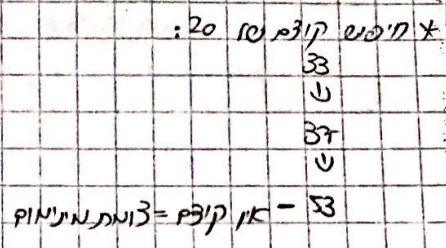 * חיפוש קודם של 20:
33
⇓
37
⇓
53 - אין קודם = צומת מינימום